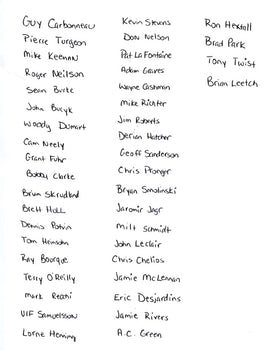 Guy Carbonneau
Pierre Turgeon
Mike Keenan
Roger Neilson
Sean Burke
John Bucyk
Woody Dumart
Cam Neely
Grant Fuhr
Bobby Clarke
Brian Skrudland
Brett Hull
Dennis Potvin
Tom Heinsohn
Ray Bourque
Terry O'Reilly
Mark Recchi
Ulf Samuelsson
Lorne Henning
Kevin Stevens
Don Nelson
Pat La Fontaine
Adam Graves
Wayne Cashman
Mike Richter
Jim Roberts
Derian Hatcher
Geoff Sanderson
Chris Pronger
Bryan Smolinski
Jaromir Jagr
Milt Schmidt
John Leclair
Chris Chelios
Jamie McLennan
Eric Desjardins
Jamie Rivers
A.C. Green
Ron Hextall
Brad Park
Tony Twist
Brian Leetch